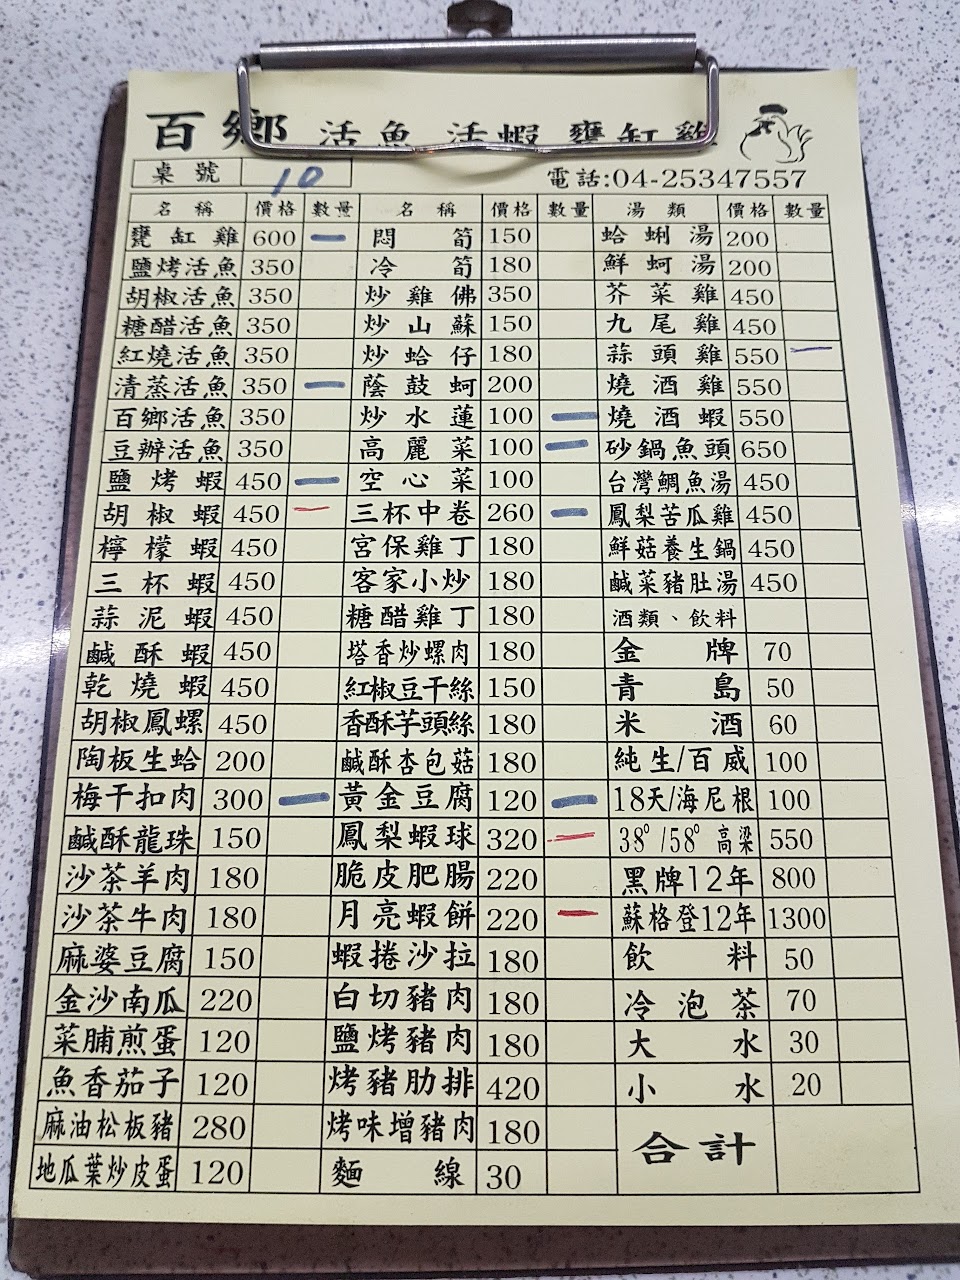 百鄉 活魚 活蝦 甕缸雞
桌號 10 電話:04-25347557
名稱 價格 數量 名稱 價格 數量 湯類 價格 數量
甕缸雞 600 一 悶筍 150 蛤蜊湯 200
鹽烤活魚 350 冷筍 180 鮮蚵湯 200
胡椒活魚 350 炒雞佛 350 芥菜雞 450
糖醋活魚 350 炒山蘇 150 九尾雞 450
紅燒活魚 350 炒蛤仔 180 蒜頭雞 550 一
清蒸活魚 350 一 蔭鼓蚵 200 燒酒雞 550
百鄉活魚 350 炒水蓮 100 一 燒酒蝦 550
豆辦活魚 350 高麗菜 100 一 砂鍋魚頭 650
鹽烤蝦 450 一 空心菜 100 台灣鯛魚湯 450
胡椒蝦 450 一 三杯中卷 260 一 鳳梨苦瓜雞 450
檸檬蝦 450 宮保雞丁 180 鮮菇養生鍋 450
三杯蝦 450 客家小炒 180 鹹菜豬肚湯 450
蒜泥蝦 450 糖醋雞丁 180 酒類、飲料
鹹酥蝦 450 塔香炒螺肉 180 金牌 70
乾燒蝦 450 紅椒豆干絲 150 青島 50
胡椒鳳螺 450 香酥芋頭絲 180 米酒 60
陶板生蛤 200 鹹酥杏包菇 180 純生/百威 100
梅干扣肉 300 一 黃金豆腐 120 一 18天/海尼根 100
鹹酥龍珠 150 鳳梨蝦球 320 一 38°/58°高梁 550
沙茶羊肉 180 脆皮肥腸 220 黑牌12年 800
沙茶牛肉 180 月亮蝦餅 220 一 蘇格登12年 1300
麻婆豆腐 150 蝦捲沙拉 180 飲料 50
金沙南瓜 220 白切豬肉 180 冷泡茶 70
菜脯煎蛋 120 鹽烤豬肉 180 大水 30
魚香茄子 120 烤豬肋排 420 小水 20
麻油松板豬 280 烤味增豬肉 180 合計
地瓜葉炒皮蛋 120 麵線 30